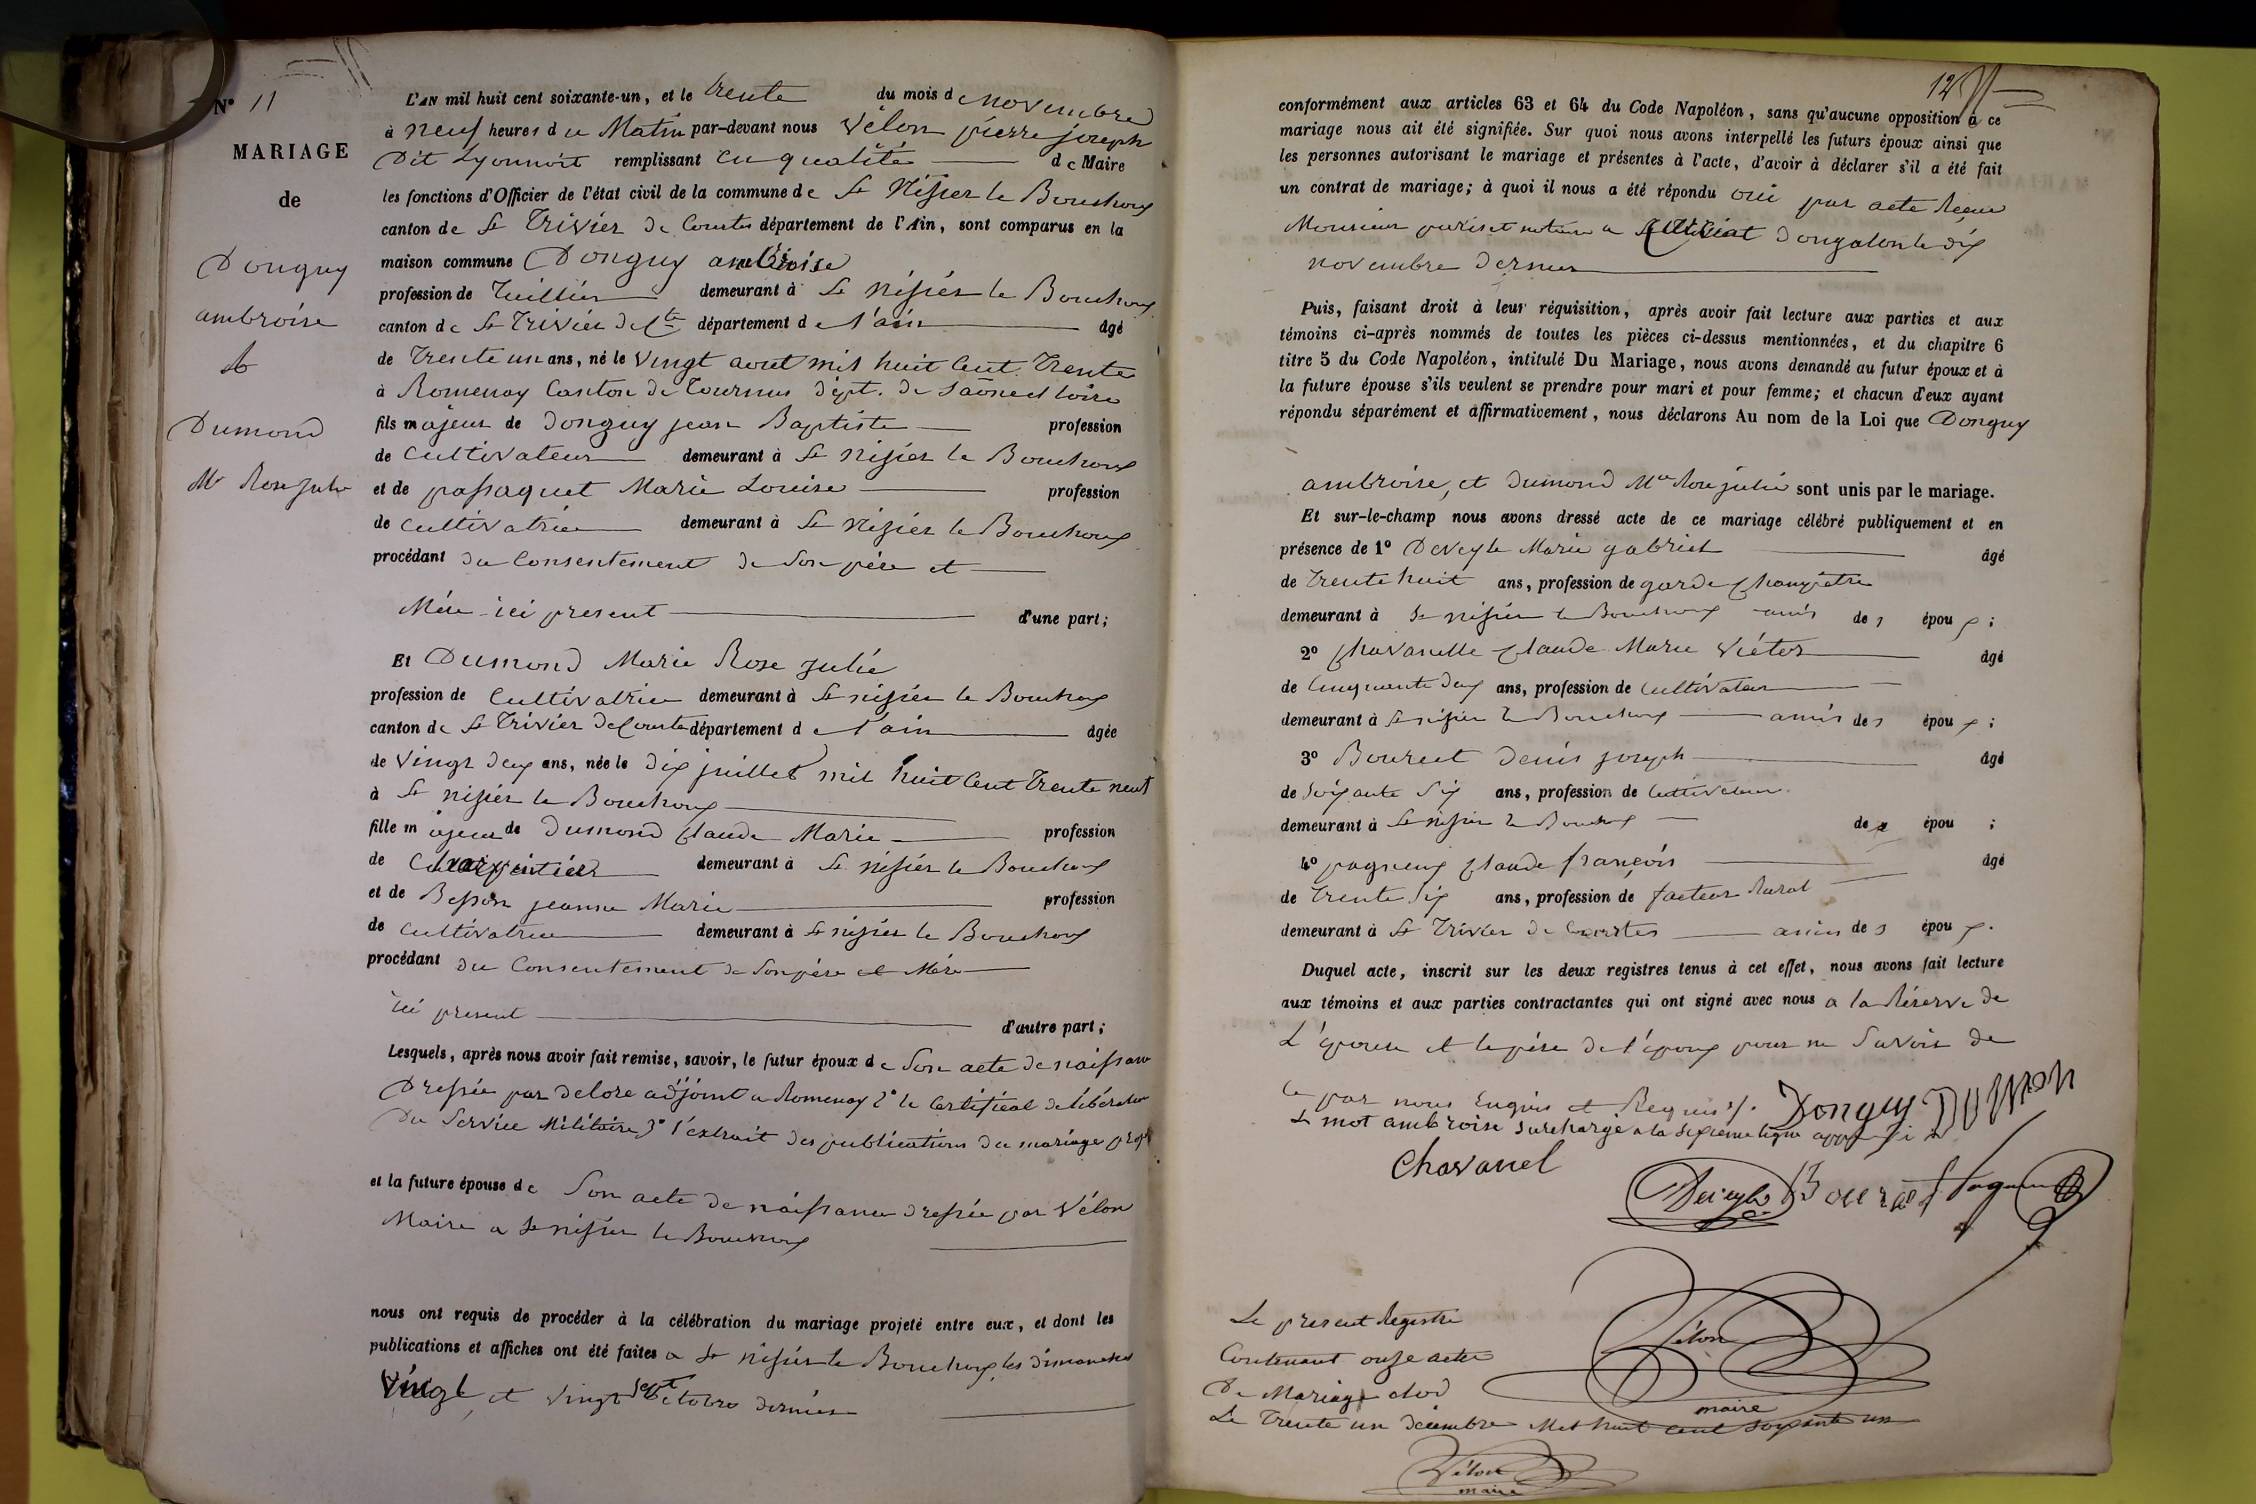 N° 11
MARIAGE
de
Donguy
ambroise
et
Dumond
Mie Rose Julie
L'AN mil huit cent soixante-un, et le trente du mois de novembre
à neuf heures du Matin par-devant nous Vélon pierre joseph
Dit Lyonnois remplissant en qualité de Maire
les fonctions d'Officier de l'état civil de la commune de St Nisier le Bouchoux
canton de St Trivier de Courtes département de l'Ain, sont comparus en la
maison commune Donguy ambroise
profession de tuillier demeurant à St nisier le Bouchoux
canton de St Trivier de Ctes département de l'ain âgé
de Trente un ans, né le vingt aout mil huit Cent Trente
à Romenay Canton de Tournus dépt. de Saône et loire
fils majeur de Donguy jean Baptiste profession
de Cultivateur demeurant à St nisier le Bouchoux
et de passaquet Marie Louise profession
de Cultivatrice demeurant à St nizier le Bouchoux
procédant du Consentement de Son père et
Mére ici present d'une part;
Et Dumond Marie Rose Julie
profession de Cultivatrice demeurant à St nisier le Bouchoux
canton de St Trivier de Courtes département de l'ain âgée
de Vingt deux ans, née le dix juillet mil huit Cent Trente neuf
à St nizier le Bouchoux
fille majeur de Dumond Claude Marie profession
de Charpentier demeurant à St nisier le Bouchoux
et de Besson jeanne Marie profession
de Cultivatrice demeurant à St nisier le Bouchoux
procédant du Consentement de Son père et Mére
ici present d'autre part;
Lesquels, après nous avoir fait remise, savoir, le futur époux de Son acte de naissance
Dressée par Delore adjoint a Romenay 2° le Certificat de libération
Du Service Militaire 3° l'extrait des publications du mariage
et la future épouse de Son acte de naissance dressée par Vélon
Maire a St nisier le Bouchoux
nous ont requis de procéder à la célébration du mariage projeté entre eux, et dont les
publications et affiches ont été faites a St nisier le Bouchoux, les dimanches
Vingt, et Vingt Sept octobre dernier
12
conformément aux articles 63 et 64 du Code Napoléon, sans qu'aucune opposition à ce
mariage nous ait été signifiée. Sur quoi nous avons interpellé les futurs époux ainsi que
les personnes autorisant le mariage et présentes à l'acte, d'avoir à déclarer s'il a été fait
un contrat de mariage; à quoi il nous a été répondu oui par acte Reçu
Monsieur notaire a dongalon le dix
novembre dernier
Puis, faisant droit à leur réquisition, après avoir fait lecture aux parties et aux
témoins ci-après nommés de toutes les pièces ci-dessus mentionnées, et du chapitre 6
titre 5 du Code Napoléon, intitulé Du Mariage, nous avons demandé au futur époux et à
la future épouse s'ils veulent se prendre pour mari et pour femme; et chacun d'eux ayant
répondu séparément et affirmativement, nous déclarons Au nom de la Loi que Donguy
ambroise, et Dumond Mie Rose julie sont unis par le mariage.
Et sur-le-champ nous avons dressé acte de ce mariage célébré publiquement et en
présence de 1° Deveyle Marie gabriel âgé
de Trente huit ans, profession de garde Champêtre
demeurant à St nisier le Bouchoux amis des époux;
2° Chavanelle Claude Marie Victor âgé
de Cinquante deux ans, profession de Cultivateur
demeurant à St nisier le Bouchoux amis des époux;
3° Bourcet Denis joseph âgé
de Soixante Six ans, profession de Cultivateur
demeurant à St nisier le Bouchoux de épou ;
4° pagneux Claude françois âgé
de trente Six ans, profession de facteur Rural
demeurant à St Trivier de Courtes amis des époux.
Duquel acte, inscrit sur les deux registres tenus à cet effet, nous avons fait lecture
aux témoins et aux parties contractantes qui ont signé avec nous a la Réserve de
L'épouse et le père de l'époux pour ne Savoir de
Ce par nous Enquis et Requis.
Le mot ambroise Surchargé a la Sixième ligne
Donguy DUMON
Chavanel
Deveyle Bourcet Pagneux
Vélon
maire
Le present Registre
Contenant onze actes
De Mariage clos
Le Trente un décembre Mil huit Cent Soixante un
Vélon
maire